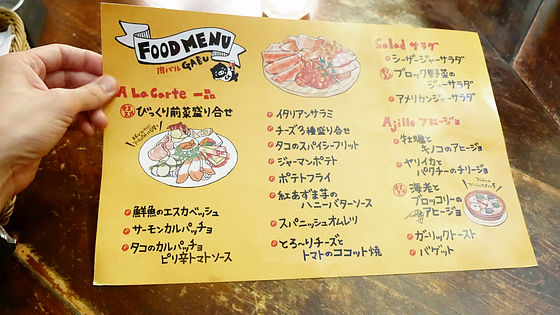 FOOD MENU
肉バル GABU
A La Carte 一品
びっくり前菜盛り合せ
鮮魚のエスカベッシュ
サーモンカルパッチョ
タコのカルパッチョ
ピリ辛トマトソース
イタリアンサラミ
チーズ3種盛り合せ
タコのスパイシーフリット
ジャーマンポテト
ポテトフライ
紅あずま芋の
ハニーバターソース
スパニッシュオムレツ
とろ〜りチーズと
トマトのココット焼
Salad サラダ
シーザージャーサラダ
ブロック野菜の
ジャーサラダ
アメリカンジャーサラダ
Ajillo アヒージョ
牡蠣と
キノコのアヒージョ
ヤリイカと
パクチーのチリージョ
海老と
ブロッコリーの
アヒージョ
ガーリックトースト
バゲット